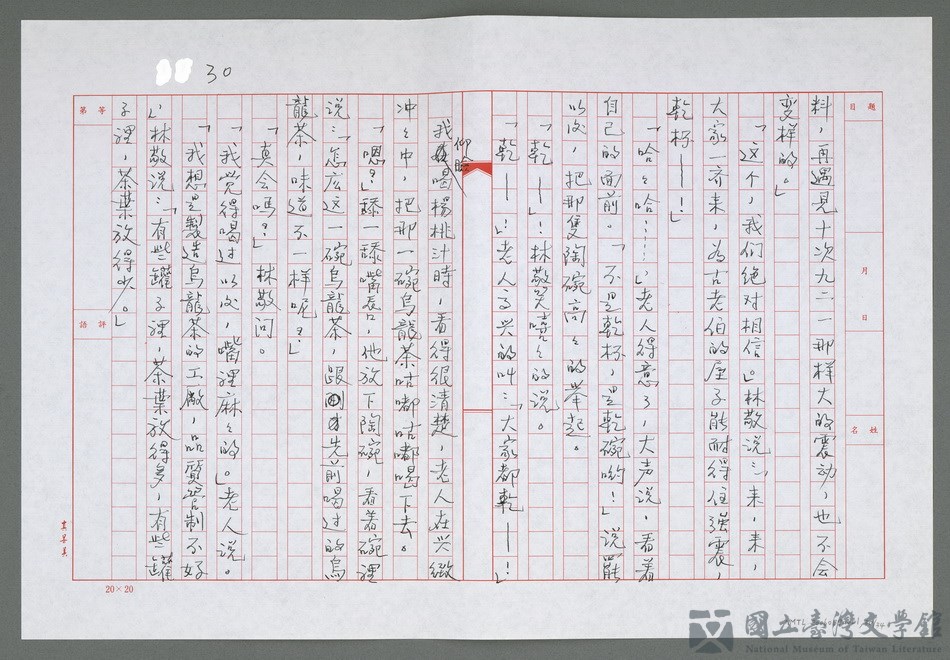 30
題目
月
日
姓名
料，再遇見十次九二一那样大的震动，也不会
变样的。」
「这个，我们绝对相信。」林敬说：「来，来，
大家一齐来，為古老伯的屋子能耐得住強震，
乾杯——！」
「哈々哈……」老人得意了，大声说，看着
自己的面前。「不是乾杯，是乾碗哟！」说罷
以後，把那隻陶碗高々的举起。
「乾——！」林敬笑嘻々的说。
「乾——！」老人高兴的叫：「大家都乾——！」
我仰臉喝楊桃汁時，看得很清楚，老人在兴緻
冲々中，把那一碗烏龍茶咕嘟咕嘟喝下去。
「嗯？」舔一舔嘴唇，他放下陶碗，看着碗裡
说：「怎庅这一碗烏龍茶，跟才先前喝过的烏
龍茶，味道不一样呢？」
「真会嗎？」林敬问。
「我覺得喝过以後，嘴裡麻々的。」老人说。
「我想是製造烏龍茶的工廠，品質管制不好
。」林敬说：「有些罐子裡，茶葉放得多，有些罐
子裡，茶葉放得少。」
等第
評語
20×20
國立臺灣文學館
National Museum of Taiwan Literature